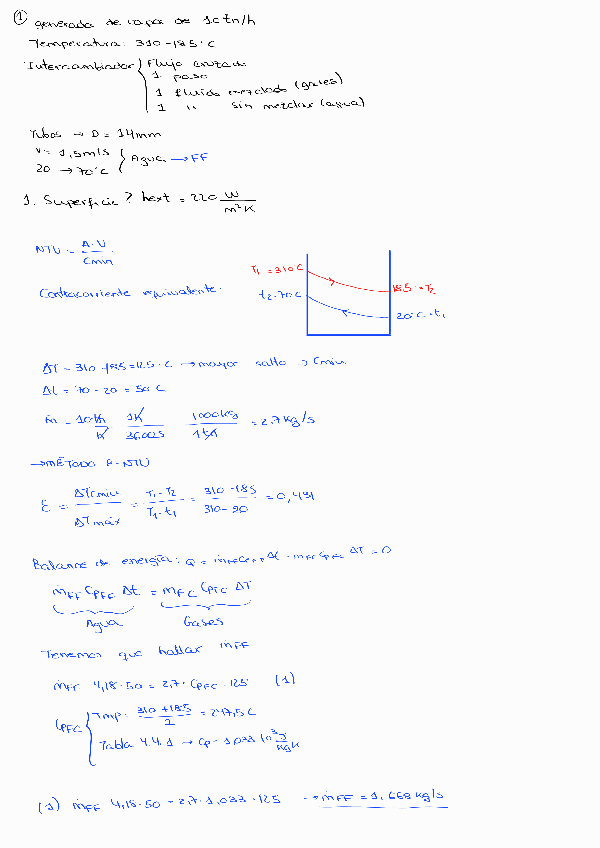 ① generada de vapor de 10tn/h
Temperatura: 310-185°C
Intercambiador { Flujo cruzado
1 paso
1 fluido mezclado (gases)
1 " sin mezclar (agua)
Tubos → D = 14mm
v = 1,5m/s } Agua → FF
20 → 70°C
1. Superficie? hext = 220 W/m²K
NTU = A·U/Cmin
Contracorriente equivalente.
T1 = 310C
t2 = 70C
185 = T2
20°C = t1
ΔT = 310-185 = 125°C → mayor salto → Cmin
Δt = 70 - 20 = 50C
ṁ = 10tn/h 1h/3600s 1000kg/1tn = 2.7kg/s
→ MÉTODO E-NTU
E = ΔTCmin/ΔTmáx = T1-T2/T1-t1 = 310-185/310-20 = 0,431
Balance de energía: Q = ṁFF CPFF Δt - ṁFC CPFC ΔT = 0
ṁFF CPFF Δt = ṁFC CPFC ΔT
Agua Gases
Tenemos que hallar ṁFF
ṁFF 4,18·50 = 2,7·CPFC·125 (1)
CPFC { Tmp = 310+185/2 = 247,5C
Tabla 4.4.1 → Cp = 1,033 10³ J/kgK
(1) ṁFF 4,18·50 = 2,7·1,033·125 → ṁFF = 1,668 kg/s